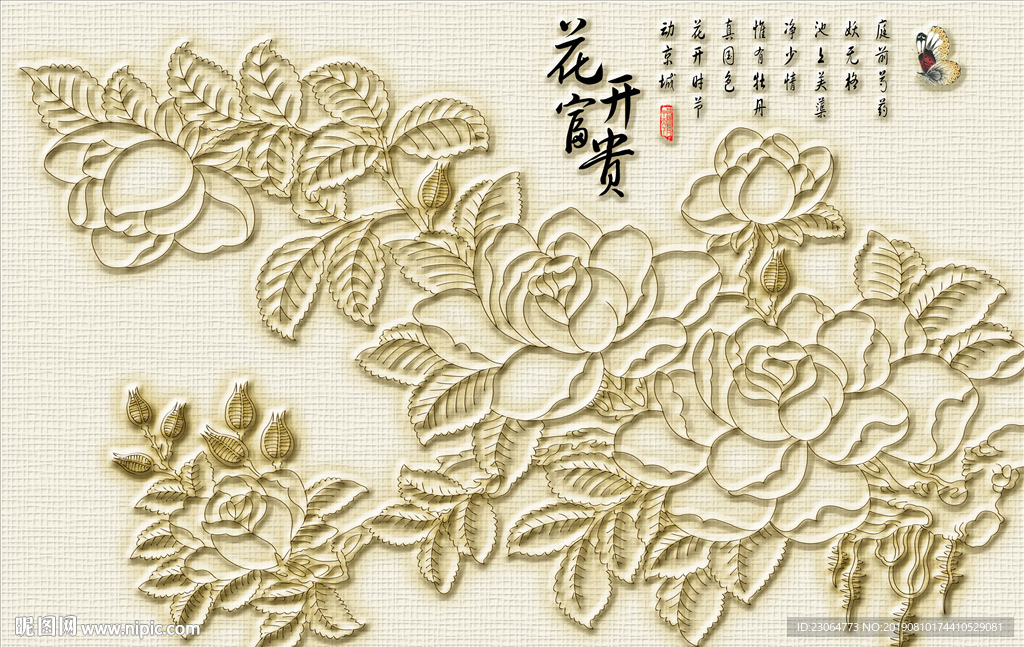 花开富贵
庭前芍药
妖无格
池上美蕖
净少情
惟有牡丹
真国色
花开时节
动京城
昵图网 www.nipic.com
ID:23064773 NO:20190810174410529081